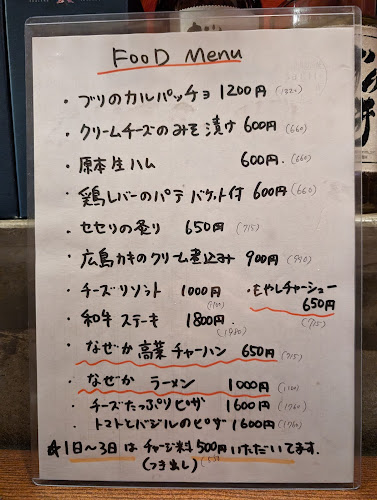 FOOD Menu
・ブリのカルパッチョ 1200円 (1320)
・クリームチーズのみそ漬け 600円 (660)
・原木生ハム 600円. (660)
・鶏レバーのパテ バケット付 600円 (660)
・セセリの炙り 650円 (715)
・広島カキのクリーム煮込み 900円 (990)
・チーズリゾット 1000円 (1100)
・もやしチャーシュー 650円 (715)
・和牛ステーキ 1800円 (1980)
・なぜか高菜チャーハン 650円 (715)
・なぜか ラーメン 1000円 (1100)
・チーズたっぷりピザ 1600円 (1760)
・トマトとバジルのピザ 1600円 (1760)
☆1日〜3日はチャージ料500円いただいてます.
(つき出し) (550)